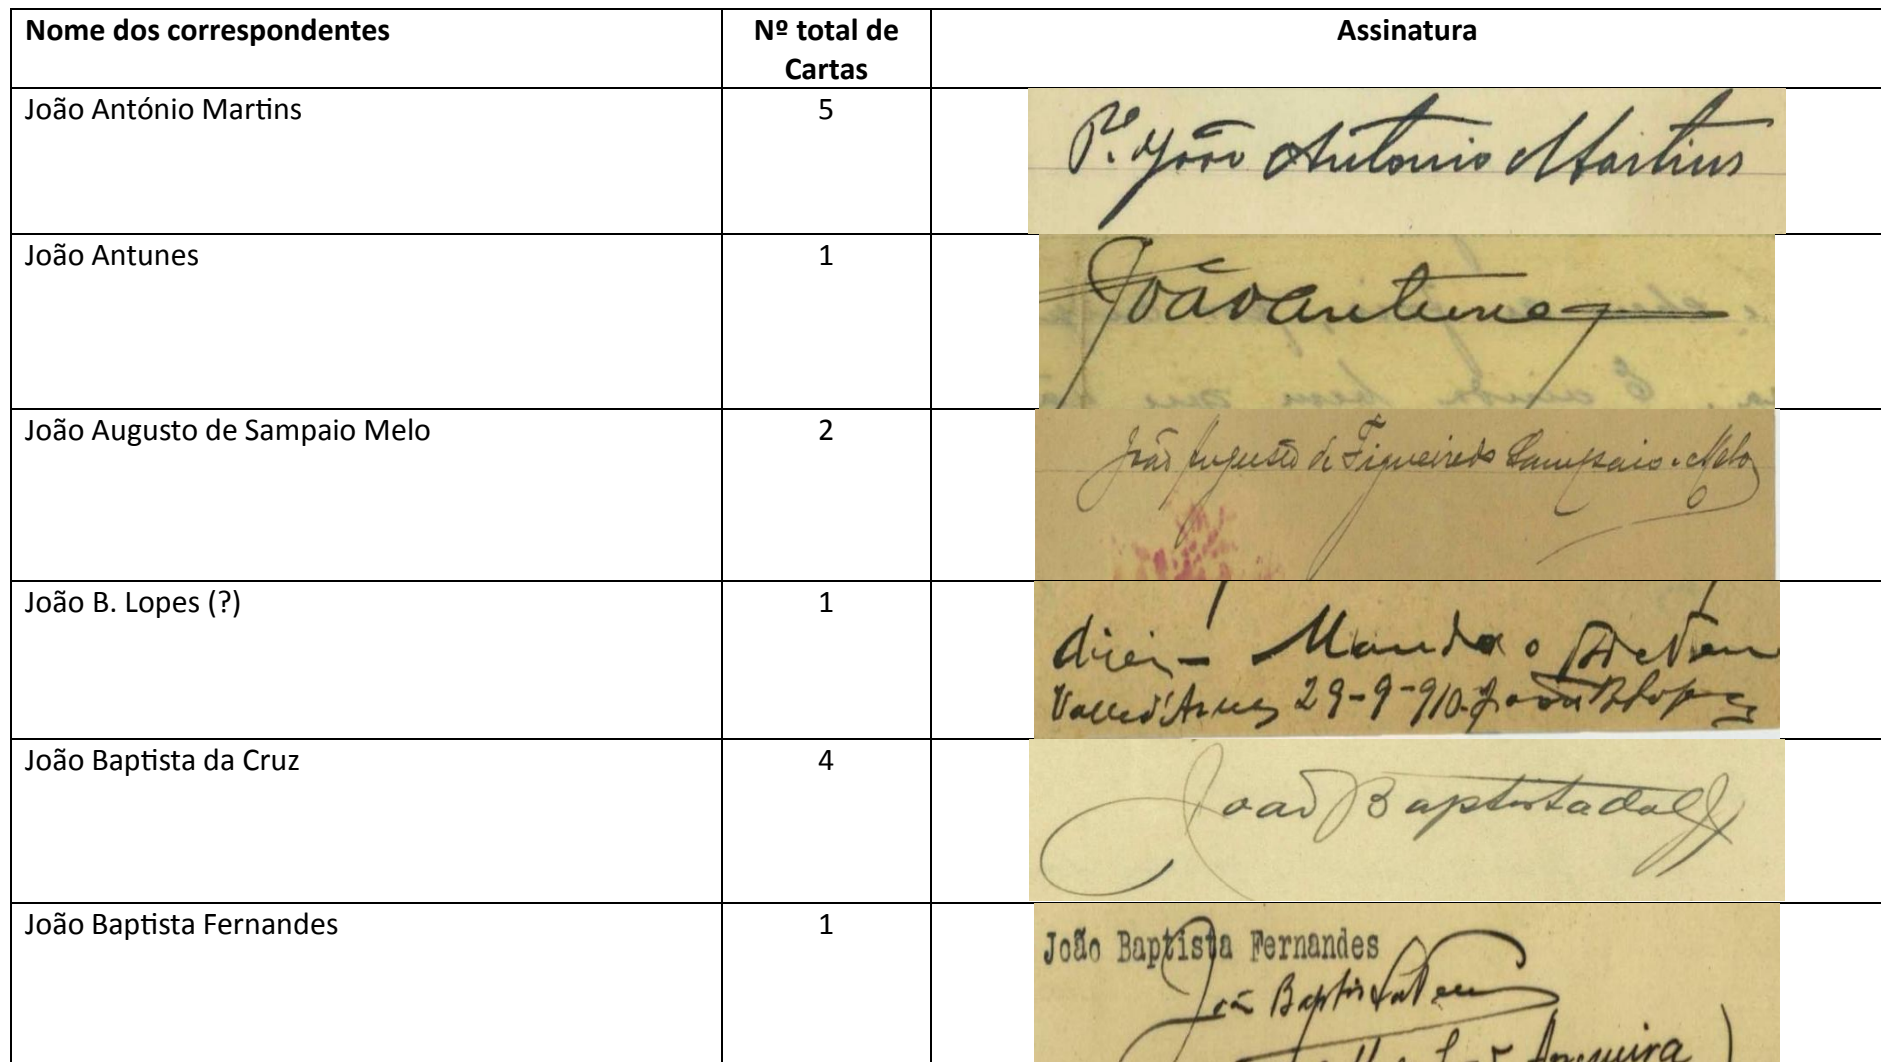 Nome dos correspondentes
Nº total de
Cartas
Assinatura
João António Martins
5
Pe. João Antonio Martins
João Antunes
1
João Antunes
João Augusto de Sampaio Melo
2
João Augusto de Figueiredo Sampaio e Melo
João B. Lopes (?)
1
direi - Manda o
29-9-910. João B Lopes
João Baptista da Cruz
4
João Baptista da
João Baptista Fernandes
1
João Baptista Fernandes
João Baptista